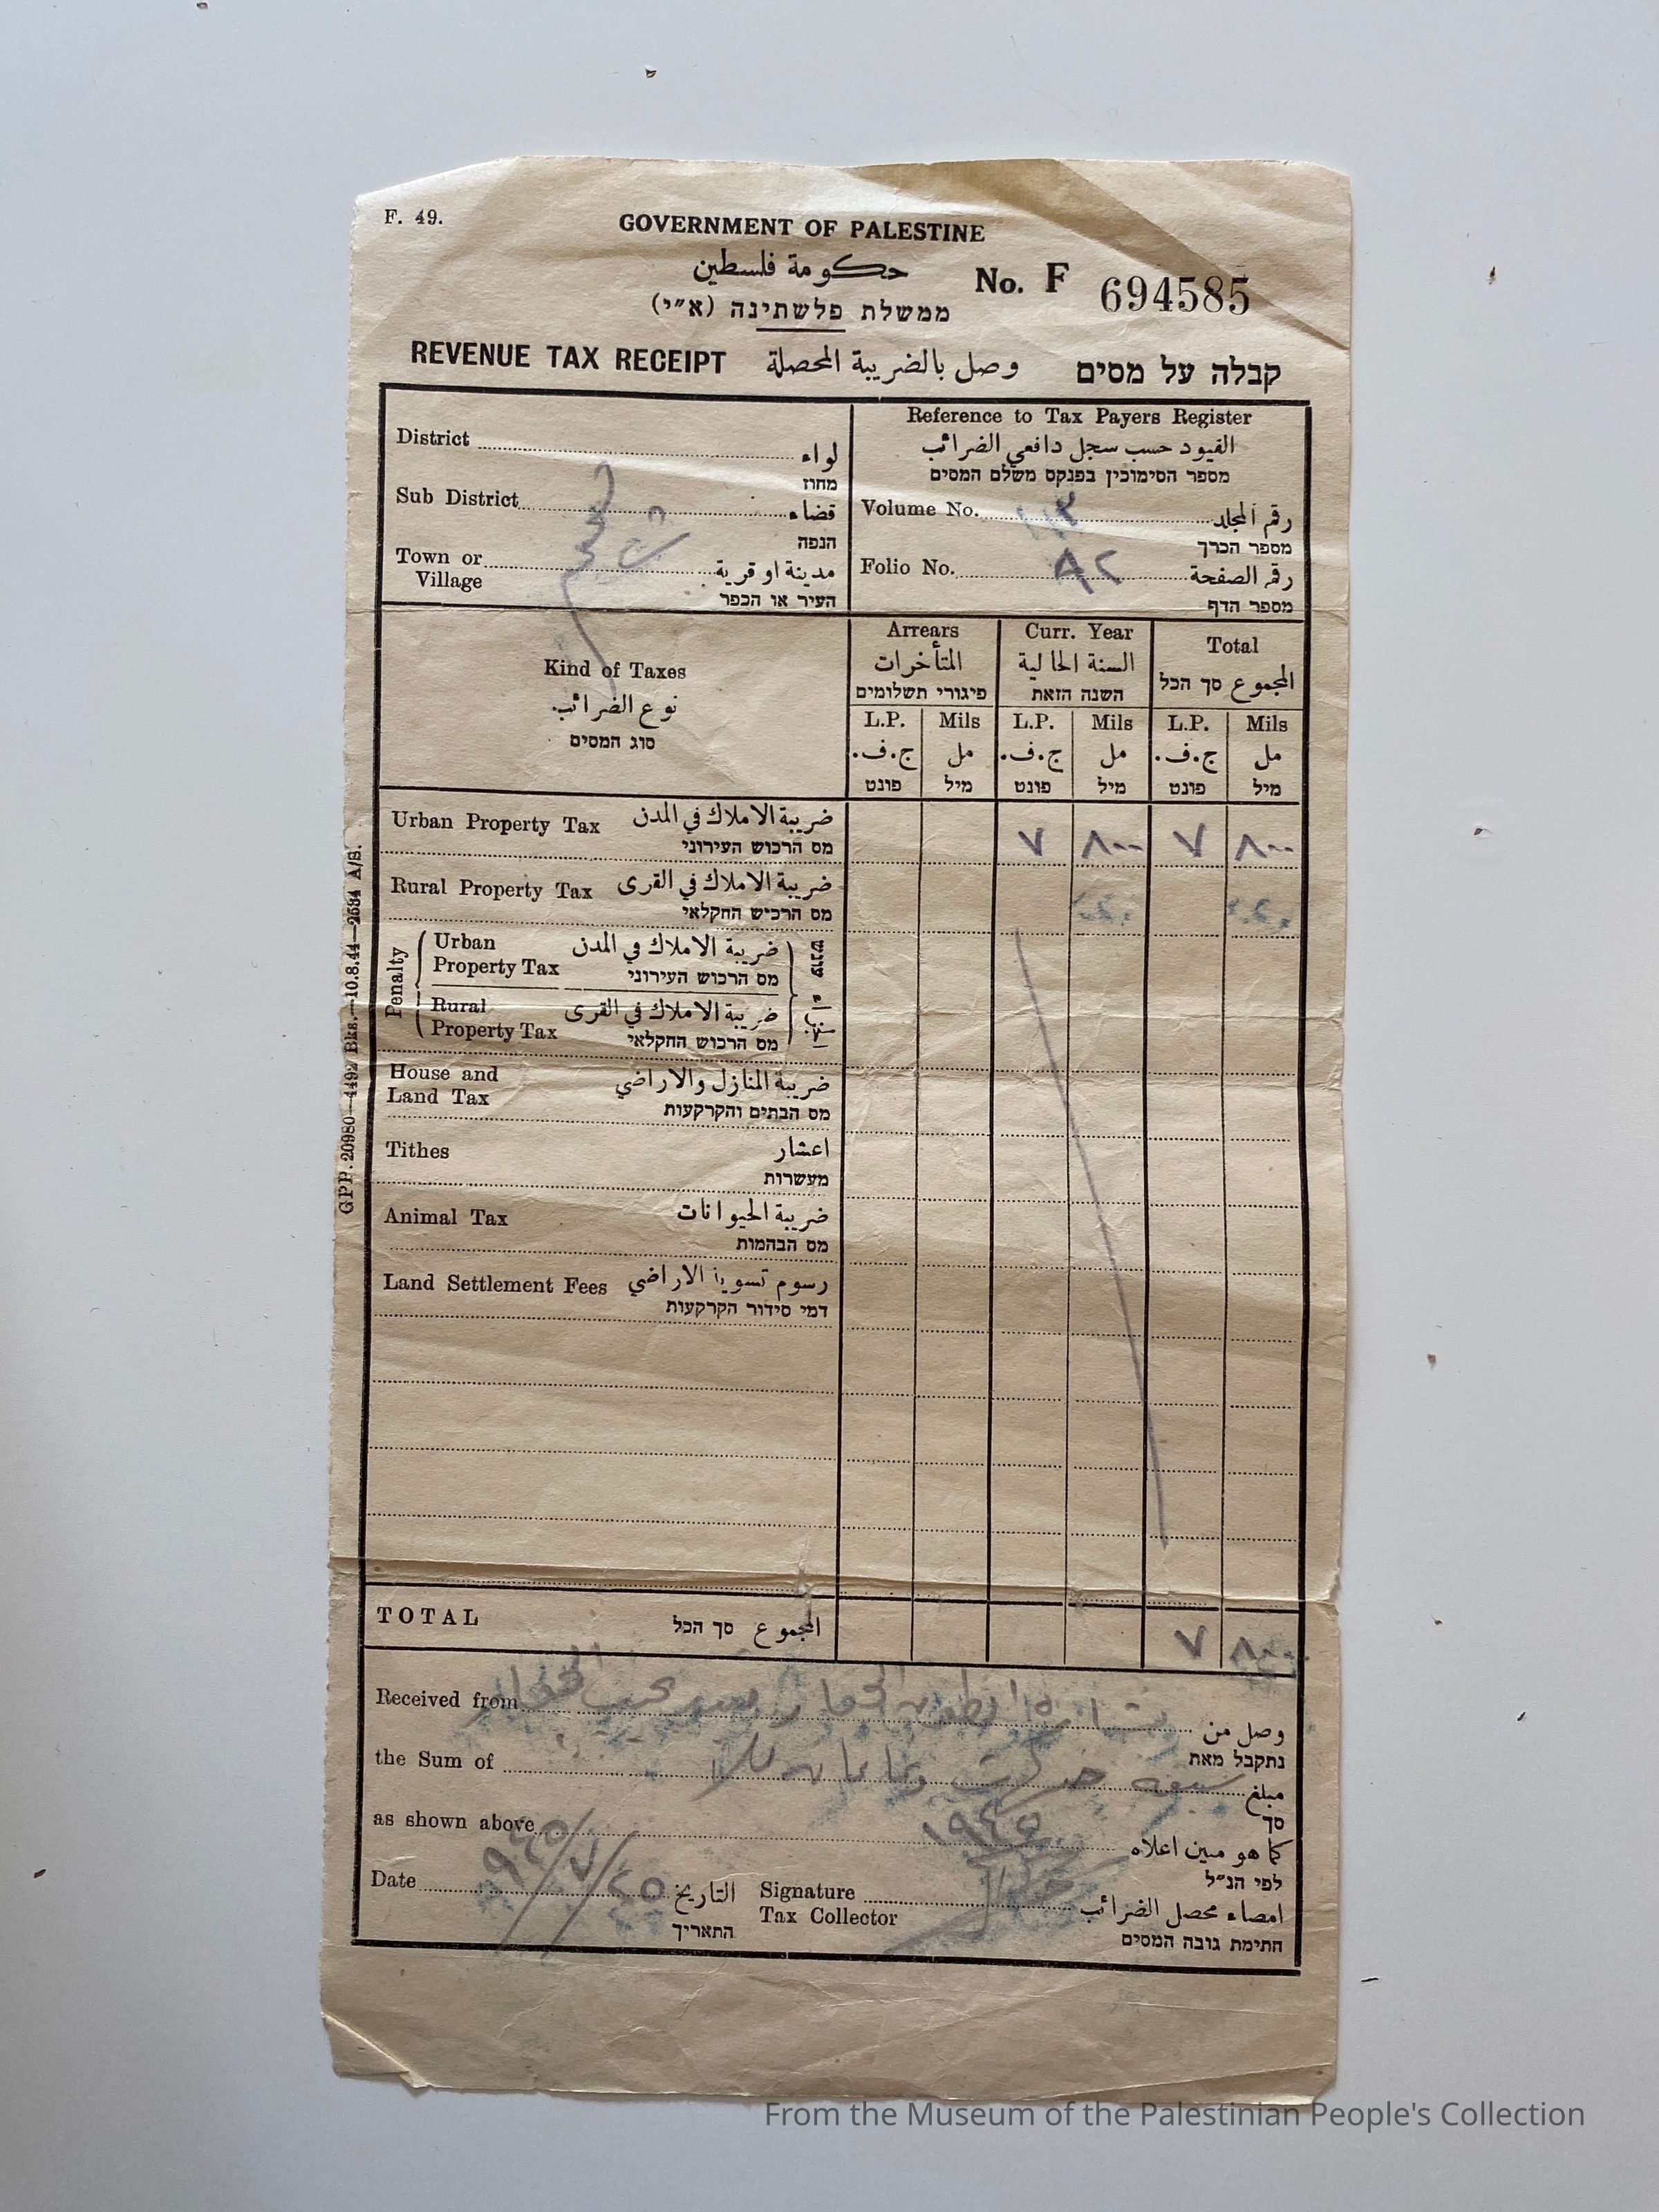 F. 49.
GOVERNMENT OF PALESTINE
حكومة فلسطين
No. F 694585
ממשלת פלשתינה (א״י)
REVENUE TAX RECEIPT وصل بالضريبة المحصلة קבלה על מסים
Reference to Tax Payers Register
القيود حسب سجل دافعي الضرائب
מספר הסימוכין בפנקס משלם המסים
District لواء
מחוז
Sub District قضاء
הנפה
Town or Village مدينة او قرية
העיר או הכפר
Volume No. رقم المجلد
מספר הכרך
Folio No. ٨٢ رقم الصفحة
מספר הדף
Kind of Taxes
نوع الضرائب.
סוג המסים
Arrears Curr. Year Total
المتأخرات السنة الحالية المجموع סך הכל
פיגורי תשלומים השנה הזאת
L.P. Mils L.P. Mils L.P. Mils
ج.ف. مل ج.ف. مل ج.ف. مل
פונט מיל פונט מיל פונט מיל
Urban Property Tax ضريبة الاملاك في المدن ٧ ٨٠٠ ٧ ٨٠٠
מס הרכוש העירוני
Rural Property Tax ضريبة الاملاك في القرى
מס הרכיש החקלאי
Penalty
Urban Property Tax ضريبة الاملاك في المدن
מס הרכוש העירוני
עונש
Rural Property Tax ضريبة الاملاك في القرى
מס הרכוש החקלאי
House and Land Tax ضريبة المنازل والاراضي
מס הבתים והקרקעות
Tithes اعشار
מעשרות
Animal Tax ضريبة الحيوانات
מס הבהמות
Land Settlement Fees رسوم تسوية الاراضي
דמי סידור הקרקעות
TOTAL סך הכל المجموع ٧ ٨٠٠
Received from وصل من
נתקבל מאת
the Sum of سبعة مبلغ
סך
as shown above ١٩٤٥ كما هو مبين اعلاه
לפי הנ״ל
Date ٢٥/٧/٩٤٥ التاريخ
התאריך
Signature Tax Collector امضاء محصل الضرائب
חתימת גובה המסים
GPP. 20980—4492 Bks.—10.8.44—2684 A/S.
From the Museum of the Palestinian People's Collection